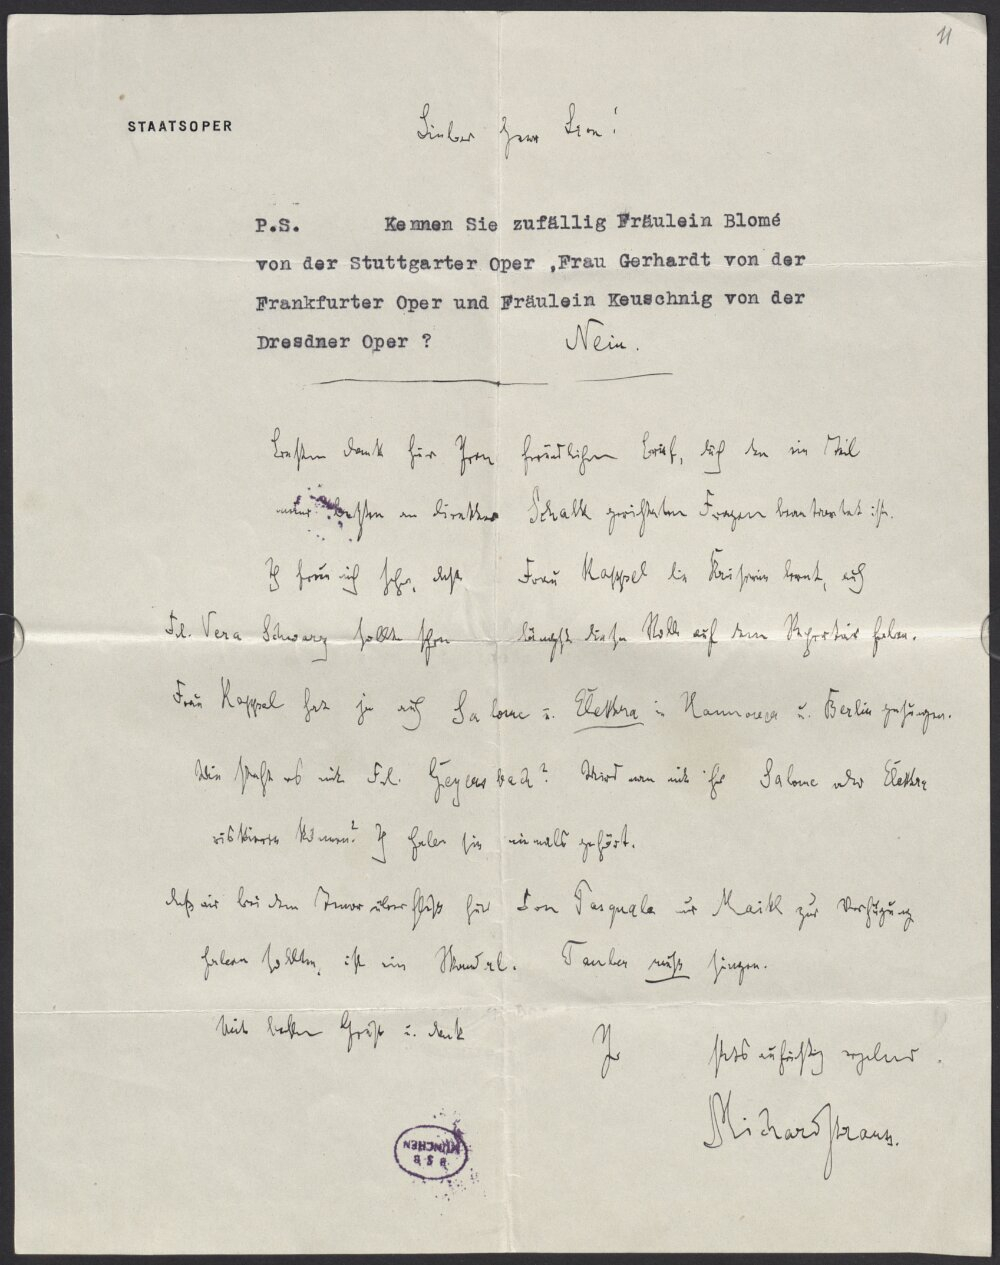 11
STAATSOPER
Lieber Herr Leon!
P.S. Kennen Sie zufällig Fräulein Blomé
von der Stuttgarter Oper ,Frau Gerhardt von der
Frankfurter Oper und Fräulein Keuschnig von der
Dresdner Oper ?
Nein.
besten Dank für Ihren freundlichen Brief, durch den ein Teil
meiner besten an Direktor Schalk gerichteten Fragen beantwortet ist.
Ich freue mich sehr, daß Frau Kappel die Kaiserin lernt, auch
Frl. Vera Schwarz sollte schon längst diese Rolle auf dem Repertoir haben.
Frau Kappel hat ja auch Salome u. Elektra in Hannover u. Berlin gesungen.
Wie steht es mit Frl. Geyersbach? Wird man mit ihr Salome oder Elektra
riskieren können? Ich habe sie niemals gehört.
daß wir bei dem Tenorüberfluß für Don Pasquale nur Maikl zur Verfügung
haben sollten, ist ein Skandal. Tauber muß singen.
Mit besten Grüßen u. Dank
Ihr stets aufrichtig ergebener
Richard Strauss.
BSB
MÜNCHEN